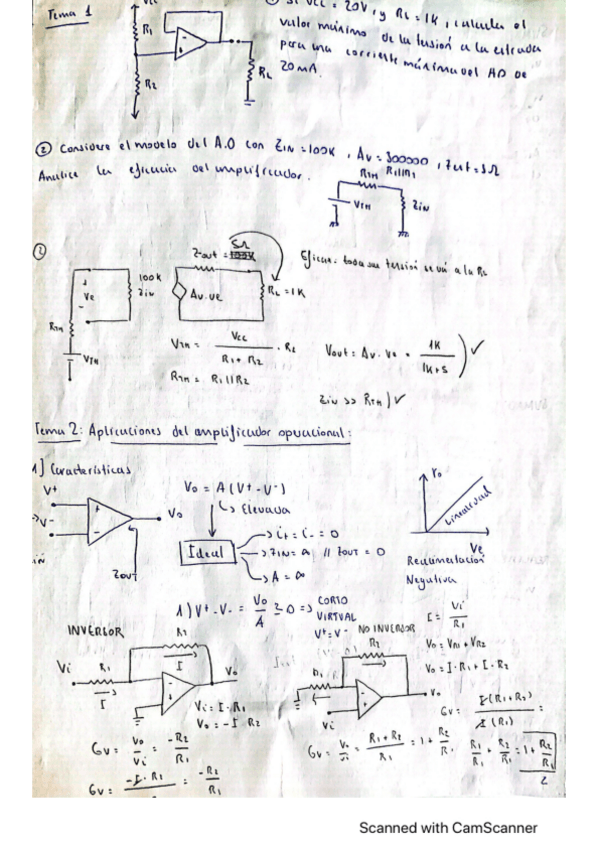 Tema 1
Vcc
R1
R2
RL
① Si Vcc = 20V, y RL = 1K, calcula el
valor máximo de la tensión a la entrada
para una corriente máxima del AO de
20mA.
② Considere el modelo del A.O con ZIN = 100K, Av = 300000, Zout = 5Ω
Analice la eficacia del amplificador.
RTH R1//R2
VTH
ZIN
②
100K
Zin
Ve
RTH
VTH
Zout = 5Ω
Av.ve
RL = 1K
Eficaz: toda su tensión se va a la RL
VTH = Vcc / R1 + R2 · R2
RTH = R1//R2
Vout = Av. Ve • 1K / 1K+5 ) ✓
Zin >> RTH ) ✓
Tema 2: Aplicaciones del amplificador operacional:
1] Características
V+
V-
Vo
IN
Zout
Vo = A (V+ - V-)
↳ Elevada
Ideal
→ i+ = i- = 0
→ ZIN = ∞ // Zout = 0
→ A = ∞
Vo
Linealidad
Ve
Realimentación
Negativa
1) V+ - V- = Vo / A ≥ 0 => CORTO
VIRTUAL
V+ = V-
INVERSOR
Vi
R1
I
Vo
Vi = I · R1
Vo = - I R2
Gv = Vo / Vi = -R2 / R1
Gv = -I · R2 = -R2 / R1
NO INVERSOR
R2
Vi
Vo
I = Vi / R1
Vo = VR1 + VR2
Vo = I · R1 + I · R2
Gv = I (R1 + R2) / I (R1) =
Gv = Vo / Vi = R1 + R2 / R1 = 1 + R2 / R1
R1 / R1 + R2 / R1 = 1 + R2 / R1
Scanned with CamScanner